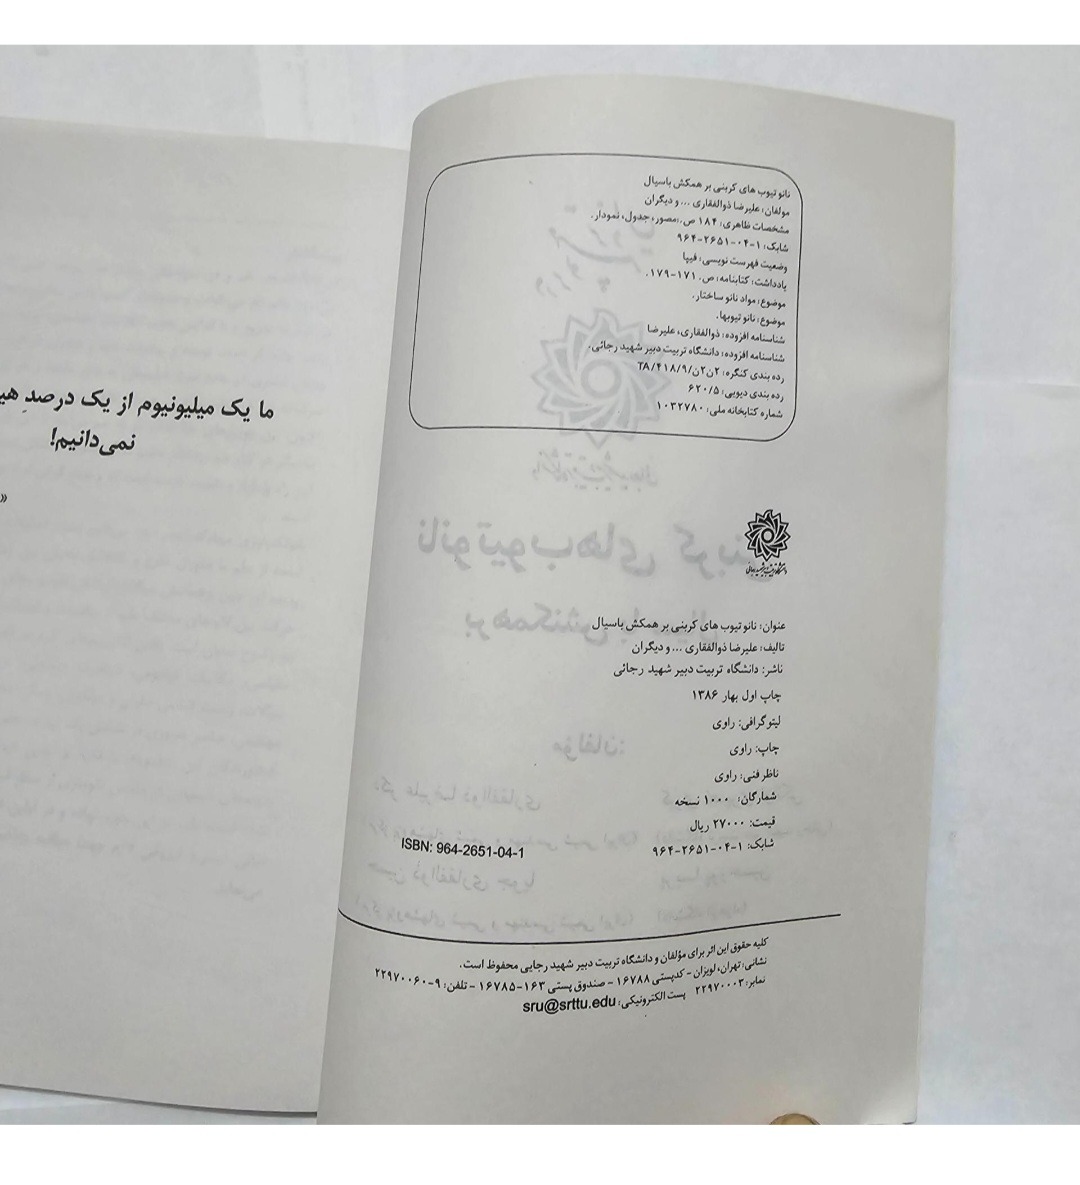 نانو تیوب های کربنی بر همکش باسیال
مولفان: علیرضا ذوالفقاری ... و دیگران
مشخصات ظاهری: ۱۸۴ ص.:مصور، جدول، نمودار.
شابک: ۱-۰۴-۲۶۵۱-۹۶۴
وضعیت فهرست نویسی: فیپا
یادداشت: کتابنامه: ص. ۱۷۱-۱۷۹.
موضوع: مواد نانو ساختار.
موضوع: نانو تیوبها.
شناسنامه افزوده: ذوالفقاری، علیرضا
شناسنامه افزوده: دانشگاه تربیت دبیر شهید رجائی.
رده بندی کنگره: ۲ن۲ن/۹/TA/۴۱۸
رده بندی دیویی: ۶۲۰/۵
شماره کتابخانه ملی: ۱۰۳۲۷۸۰
عنوان: نانو تیوب های کربنی بر همکش باسیال
تالیف: علیرضا ذوالفقاری ... و دیگران
ناشر: دانشگاه تربیت دبیر شهید رجائی
چاپ اول بهار ۱۳۸۶
لیتوگرافی: راوی
چاپ: راوی
ناظر فنی: راوی
شمارگان: ۱۰۰۰ نسخه
قیمت: ۲۷۰۰۰ ریال
شابک: ۱-۰۴-۲۶۵۱-۹۶۴
ISBN: 964-2651-04-1
کلیه حقوق این اثر برای مؤلفان و دانشگاه تربیت دبیر شهید رجایی محفوظ است.
نشانی: تهران، لویزان - کدپستی ۱۶۷۸۸ - صندوق پستی ۱۶۳-۱۶۷۸۵ - تلفن: ۹-۲۲۹۷۰۰۶۰
نمابر: ۲۲۹۷۰۰۰۳ پست الکترونیکی: sru@srttu.edu
ما یک میلیونیوم از یک درصدِ
نمی‌دانیم!